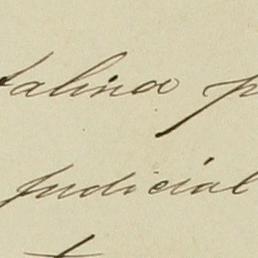 talina p
Judicial